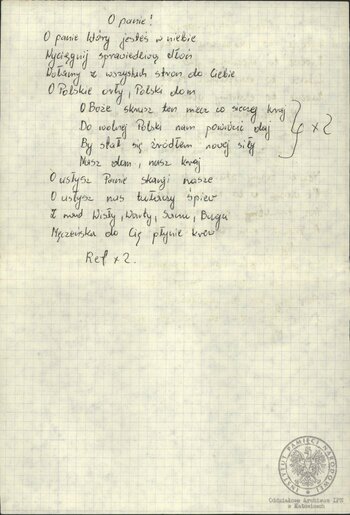 O panie!
O panie który jesteś w niebie
Wyciągnij sprawiedliwą dłoń
Wołamy z wszystkich stron do Ciebie
O Polskie orły, Polski dom
O Boże skrusz ten miecz co siecze kraj
Do wolnej Polski nam powrócić daj
By stał się źródłem nowej siły
Nasz dom, nasz kraj
} x 2
O usłysz Panie skargi nasze
O usłysz nas tułaczy śpiew
Z nad Wisły, Warty, Sanu, Bugu
Męczeńska do Cię płynie krew
Ref x 2.
INSTYTUT PAMIĘCI NARODOWEJ
Oddziałowe Archiwum IPN
w Katowicach